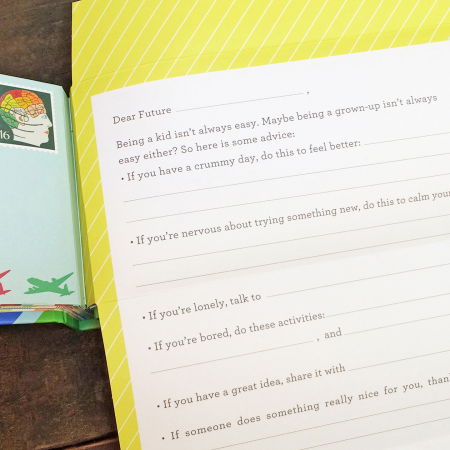 16
Dear Future ,
Being a kid isn't always easy. Maybe being a grown-up isn't always
easy either? So here is some advice:
• If you have a crummy day, do this to feel better:
• If you're nervous about trying something new, do this to calm your
• If you're lonely, talk to
• If you're bored, do these activities:
, and
• If you have a great idea, share it with
• If someone does something really nice for you,